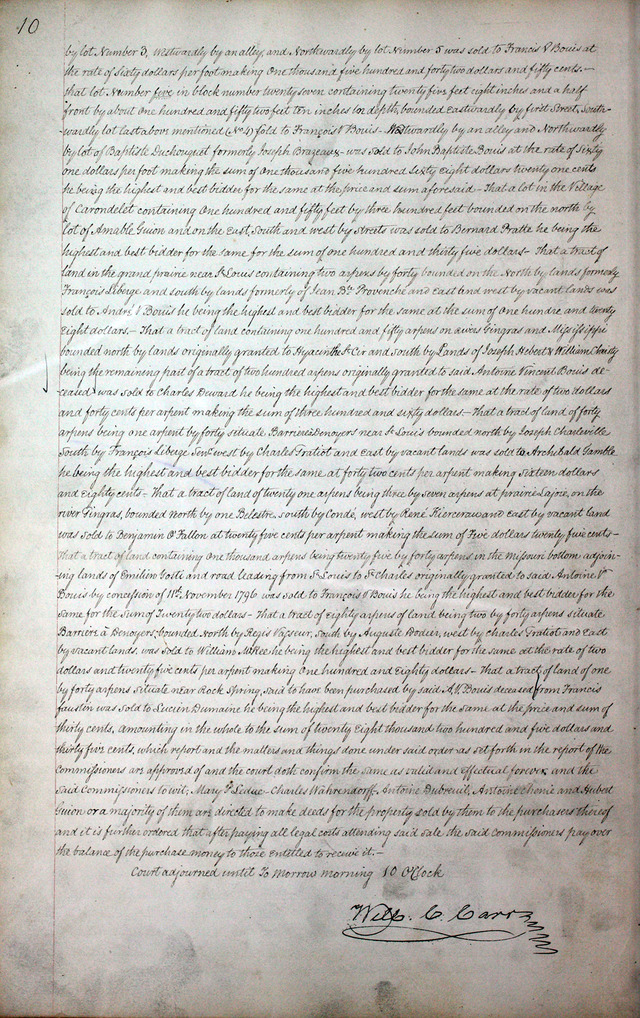 10
by lot Number 3, Westwardly by an alley, and Northwardly by lot Number 5 was sold to Francis V Bouis at
the rate of Sixty dollars per foot making One thousand five hundred and forty two dollars and fifty cents.—
that lot Number five in block number twenty seven containing twenty five feet eight inches and a half
front by about one hundred and fifty two feet ten inches in depth, bounded Eastwardly by first Street, South-
wardly lot last above mentioned (No 4) sold to François V Bouis — Westwardly by an alley and Northwardly
by lot of Baptiste Duchouquet formerly Joseph Brazeaux — was sold to John Baptiste Bouis at the rate of Sixty
one dollars per foot making the sum of One thousand five hundred Sixty Eight dollars twenty one cents
he being the highest and best bidder for the same at the price and sum aforesaid — That a lot in the Village
of Carondelet containing One hundred and fifty feet by three hundred feet bounded on the north by
lot of Amable Guion and on the East, South and west by Streets was sold to Bernard Pratte he being the
highest and best bidder for the same for the sum of one hundred and thirty five dollars — That a tract of
land in the grand prairie near St Louis containing two arpens by forty bounded on the North by lands formerly
François Leberge and south by lands formerly of Jean Bte Provenche and East and west by vacant lands was
sold to André V Bouis he being the highest and best bidder for the same at the sum of One hundre and twenty
Eight dollars. — That a tract of land containing one hundred and fifty arpens on Gingras and Mississippi
bounded north by lands originally granted to Hyacinthe St Cir and South by Lands of Joseph Hebert & William Christy
being the remaining part of a tract of two hundred arpens originally granted to said Antoine Vincent Bouis de-
ceased was sold to Charles Deward he being the highest and best bidder for the same at the rate of two dollars
and forty cents per arpent making the sum of three hundred and sixty dollars — That a tract of land of forty
arpens being one arpent by forty situate Barriere à Denoyers near St Louis bounded north by Joseph Charleville
South by François Liberge Senr. west by Charles Gratiot and East by vacant lands was sold to Archibald Gamble
he being the highest and best bidder for the same at forty two cents per arpent making Sixteen dollars
and Eighty cents — That a tract of land of twenty one arpens being three by seven arpens at prairie Lajoie, on the
river Gingras, bounded North by one Belestre, south by Condé, west by René Kiercerau and East by vacant land
was Sold to Benjamin O'Fallon at twenty five cents per arpent making the sum of Five dollars twenty five cents —
That a tract of land containing One thousand arpens being twenty five by forty arpens in the Missouri bottom adjoin-
-ing lands of Emilien Yosti and road leading from St Louis to St Charles originally granted to said Antoine V
Bouis by concession of 11th November 1796 was sold to François V Bouis he being the highest and best bidder for the
same for the Sum of Twenty two dollars — That a tract of Eighty arpens of land being two by forty arpens situate
Barrière à Denoyers, bounded North by Regis Vasseur, South by Auguste Rodier, west by Charles Gratiot and East
by vacant lands, was Sold to William McRee he being the highest and best bidder for the same at the rate of two
dollars and twenty five cents per arpent making One hundred and Eighty dollars — That a tract of land of one
by forty arpens situate near Rock Spring, said to have been purchased by said A. V. Bouis deceased from Francis
faustin was Sold to Lucien Dumaine he being the highest and best bidder for the same at the price and sum of
thirty cents, amounting in the whole to the sum of twenty Eight thousand two hundred and five dollars and
thirty five cents, which report and the matters and things done under said order as set forth in the report of the
Commissioners are approved of and the court doth confirm the same as valid and effectual forever and the
Said Commissioners to wit, Mary P. Leduc — Charles Wahrendorff, Antoine Dubreuil, Antoine Chenie and Hubert
Guion or a majority of them are directed to make deeds for the property sold by them to the purchasers thereof
and it is further ordered that after paying all legal costs attending said sale the said Commissioners pay over
the balance of the purchase money to those Entitled to receive it. —
Court adjourned until To Morrow morning 10 O'Clock
Will. C. Carr